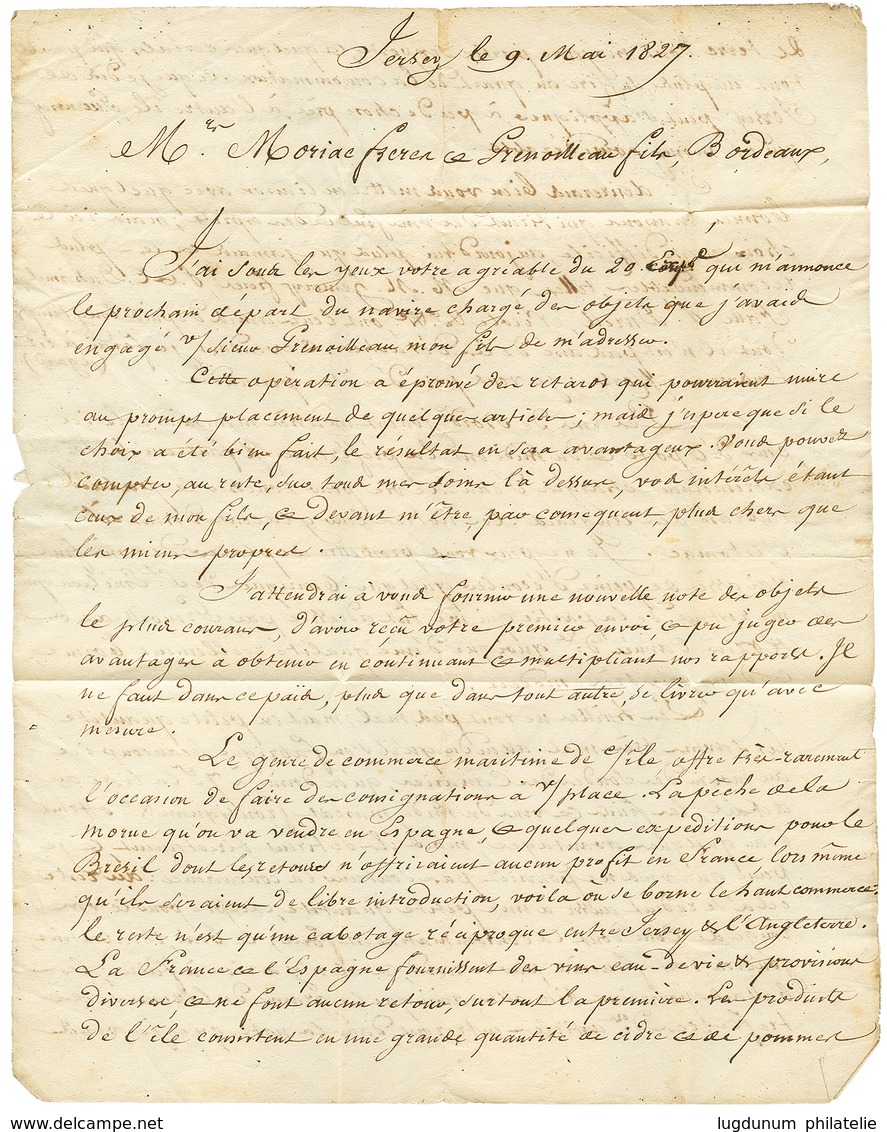 Jersey le 9. Mai 1827.
Mrs. Moriac freres & Grenoilleau fils Bordeaux,
J'ai sous les yeux votre agréable du 20. qui m'annonce
le prochain départ du navire chargé des objets que j'avais
engagé v/ sieur Grenoilleau mon fils de m'adresser.
Cette opération a éprouvé des retards qui pourraient nuire
au prompt placement de quelques articles ; mais j'espere que si le
choix a été bien fait, le résultat en sera avantageux. Vous pouvez
compter, au reste, sur tous mes soins là dessus, vos intérêts étant
ceux de mon fils, & devant m'être, par consequent, plus chers que
les miens propres.
J'attendrai à vous fournir une nouvelle note des objets
le plus courans, d'avoir reçu votre premier envoi, & pu juger des
avantages à obtenir en continuant & multipliant nos rapports. Il
ne faut dans ce païs, plus que dans tout autre, se livrer qu'avec
mesure.
Le genre de commerce maritime de c/ île offre très-rarement
l'occasion de faire des consignations à v/ place. La pêche de la
morue qu'on va vendre en Espagne, & quelques expéditions pour le
Brésil dont les retours n'offriraient aucun profit en France lors même
qu'ils seraient de libre introduction, voila où se borne le haut commerce.
le reste n'est qu'un cabotage réciproque entre Jersey & l'Angleterre.
La France & l'Espagne fournissent des vins eau-de-vie & provisions
diverses, & ne font aucun retour, surtout la première. Les produits
de l'île consistent en une grande quantité de cidre & de pommes
www.delcampe.net
lugdunum philatelie